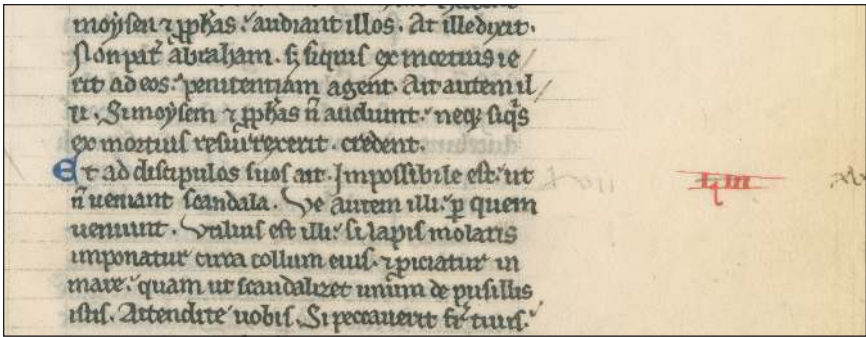 moysen ⁊ ꝓphãs. audiant illos. At ille dixit.
Non pat̃ abraham. s; siquis ex mortuis ie
rit ad eos. penitentiam agent. Ait autem il
li. Si moysem ⁊ ꝓphãs ñ audiunt. neq; siqͥs
ex mortuis resurrexerit. credent.
Et ad discipulos suos ait. Impossibile est. ut
ñ ueniant scandala. Ve autem illi. ꝑ quem
ueniunt. Vtilius est illi. si lapis molaris
imponatur circa collum eius. ⁊ ꝓiciatur in
mare. quam ut scandalizet unum de pusillis
istis. Attendite uobis. Si peccauerit fr̃ tuus.